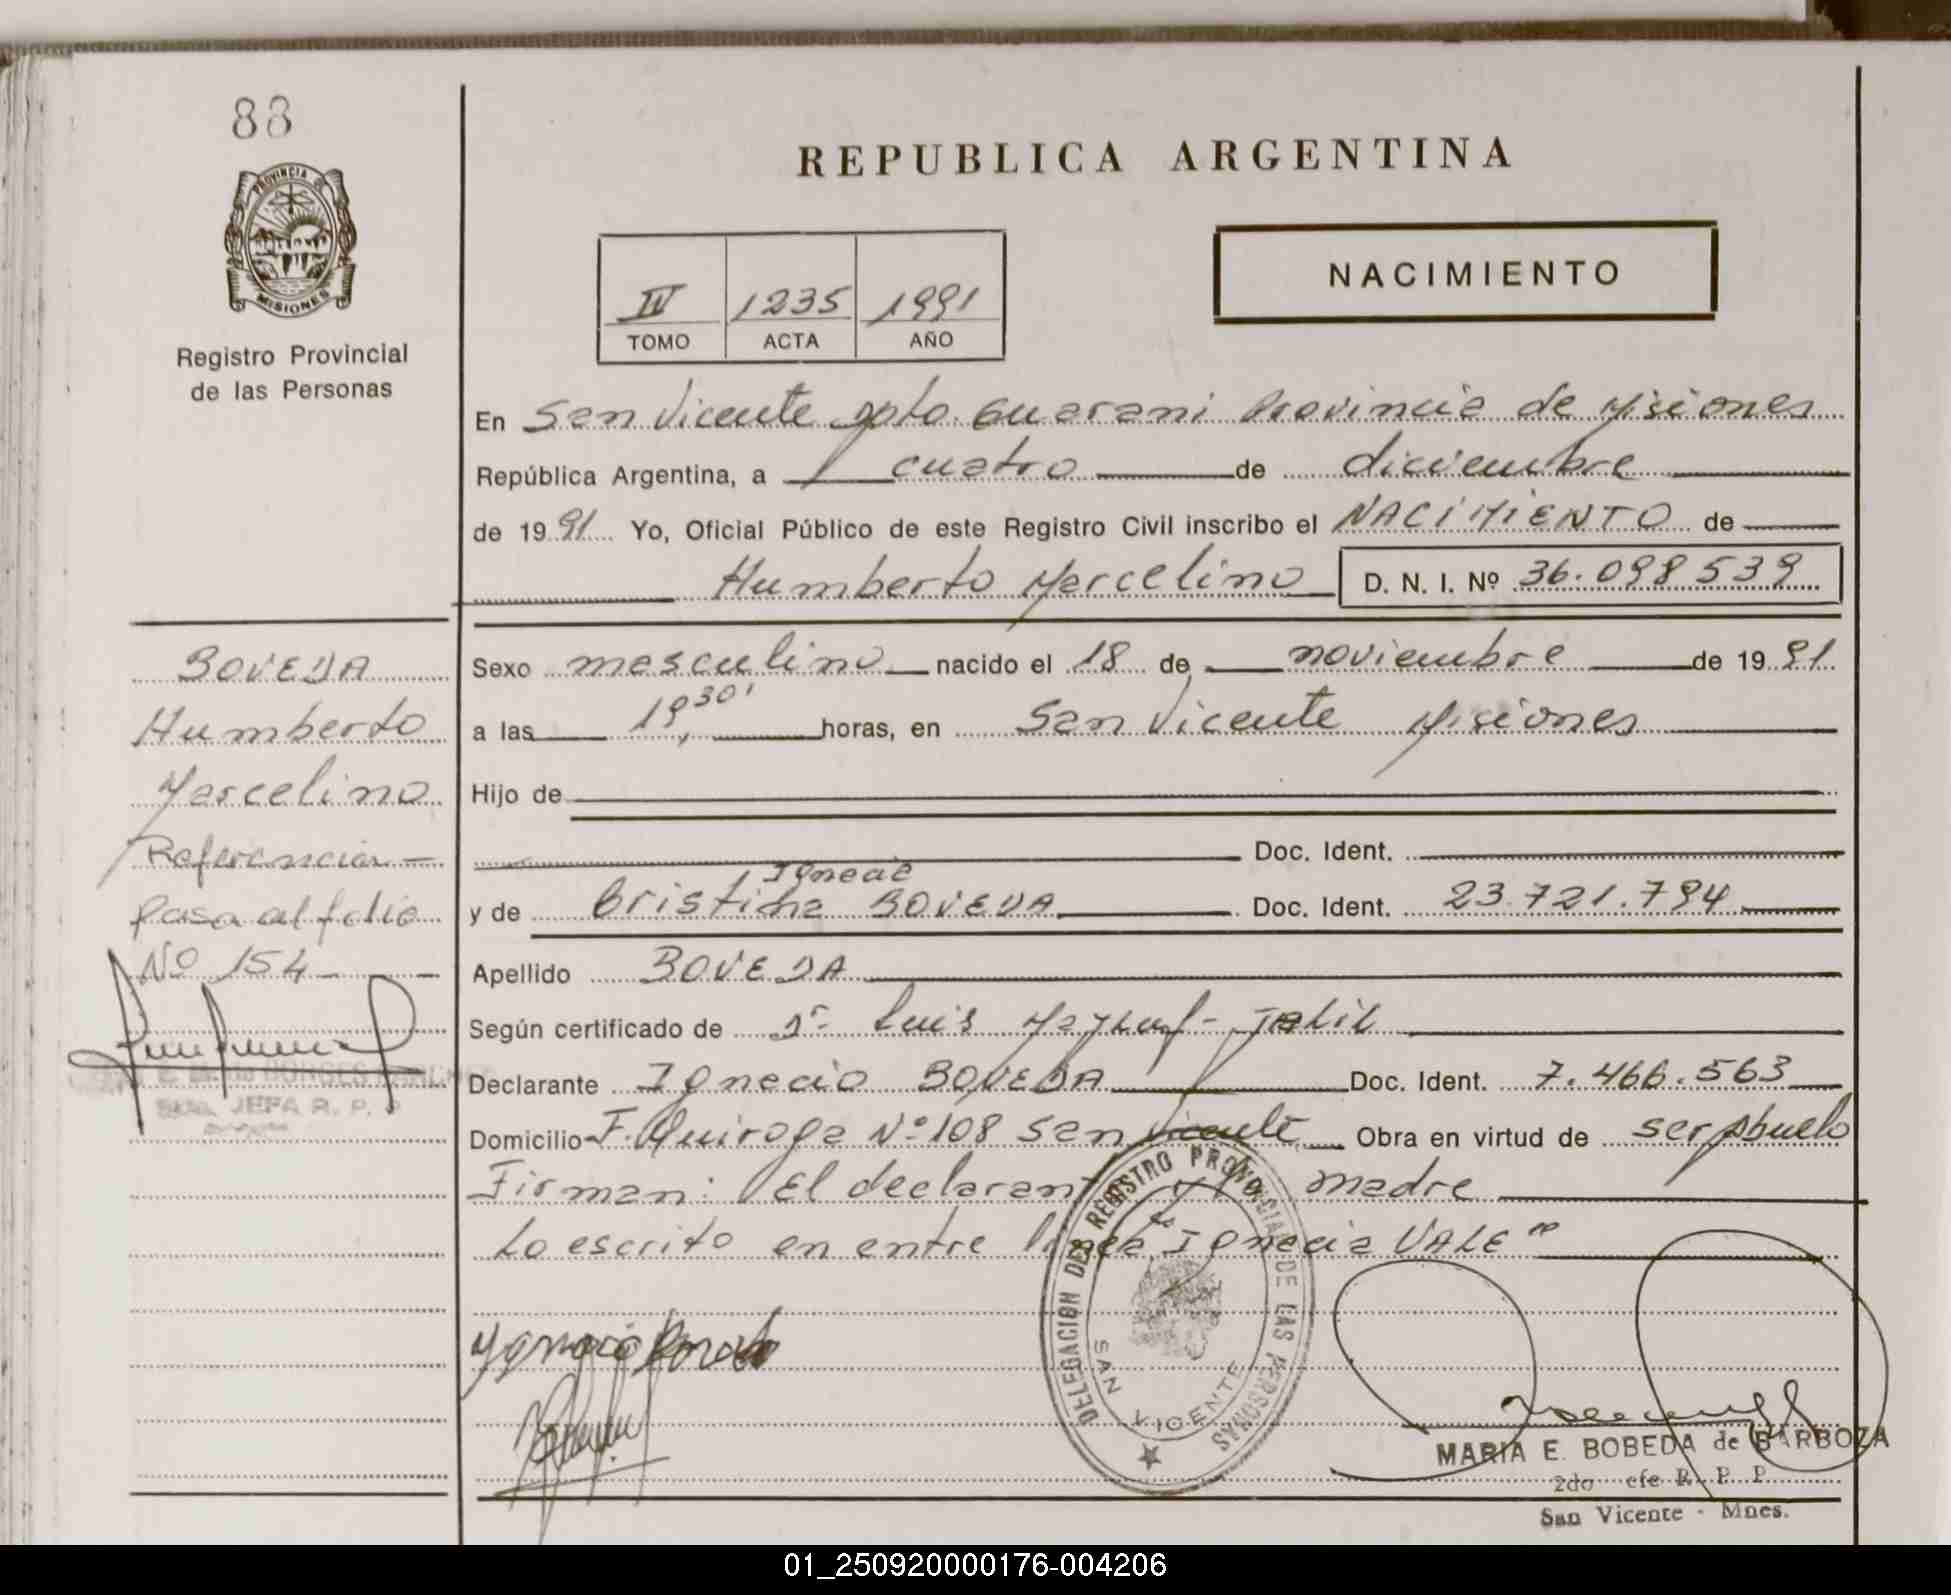 88
REPUBLICA ARGENTINA
PROVINCIA DE
MISIONES
Registro Provincial
de las Personas
NACIMIENTO
IV 1235 1991
TOMO ACTA AÑO
En San Vicente Dpto. Guarani Provincia de Misiones
República Argentina, a cuatro de diciembre
de 1991 Yo, Oficial Público de este Registro Civil inscribo el NACIMIENTO de
Humberto Marcelino D. N. I. Nº 36.098539
Sexo masculino nacido el 18 de noviembre de 1991
a las 19,30' horas, en San Vicente Misiones
Hijo de
Doc. Ident.
Ignacia
y de Cristina BOVEDA Doc. Ident. 23.721.794
Apellido BOVEDA
Según certificado de Dr. Luis
Declarante Ignacio BOVEDA Doc. Ident. 7.466.563
Domicilio F. Quiroga Nº 108 San Vicente Obra en virtud de ser Abuelo
Firman: El declarante y la madre
Lo escrito en entre linea "Ignacia VALE"
BOVEDA
Humberto
Marcelino
Referencia -
pasa al folio
Nº 154
JEFA R. P. P
DELEGACION DEL REGISTRO PROVINCIAL DE LAS PERSONAS
SAN VICENTE
MARIA E. BOBEDA de BARBOZA
2do efe R. P. P
San Vicente - Mnes.
01_250920000176-004206